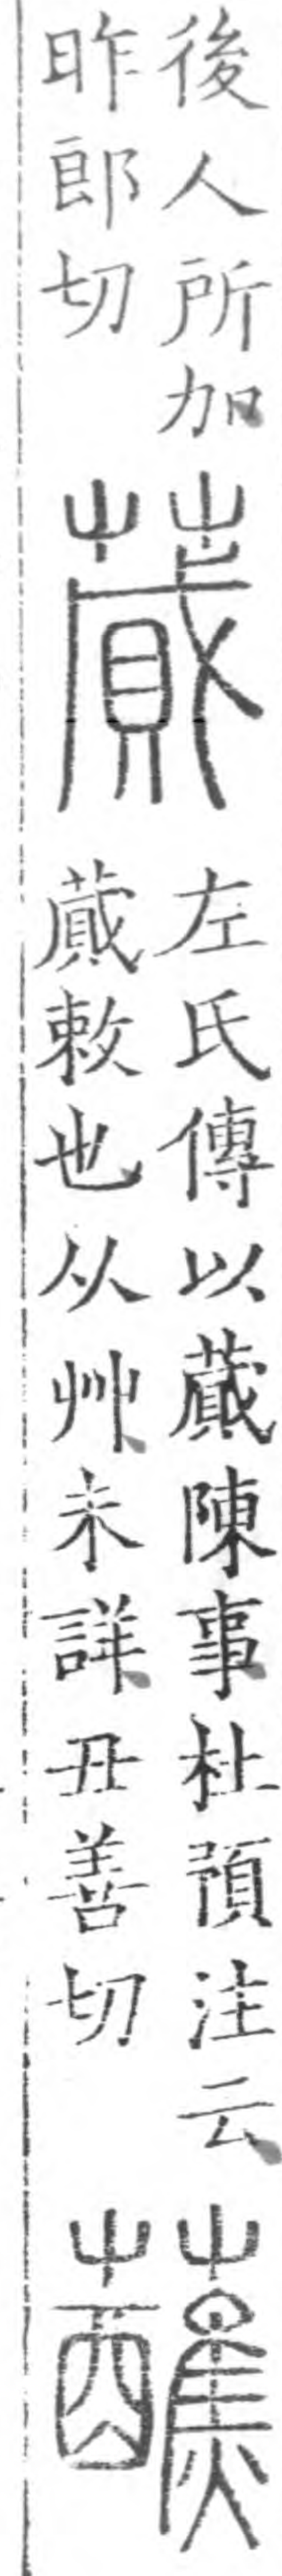 後人所加
昨郎切
蕆
左氏傳以蕆陳事杜預注云
蕆敕也从艸未詳丑善切
蘸